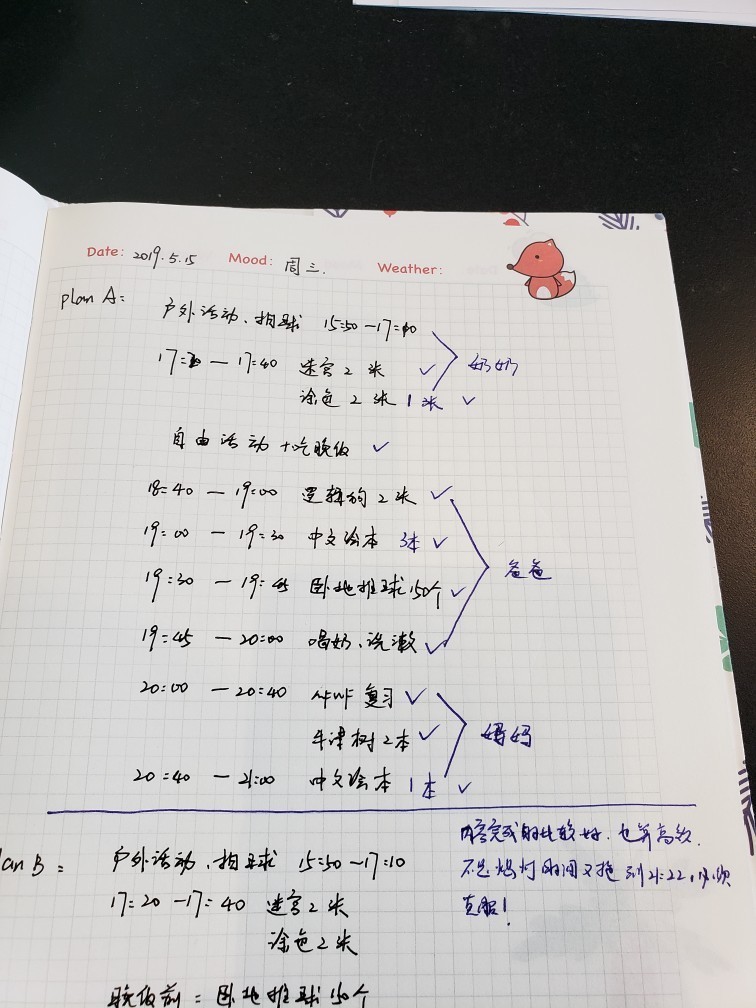 Date: 2019.5.15 Mood: 周三. Weather:
plan A: 户外活动、拍球 15:50—17:10
17:20 — 17:40 迷宫2张 ✓ 奶奶
涂色2张 1张 ✓
自由活动+吃晚饭 ✓
18:40 — 19:00 逻辑狗2张 ✓
19:00 — 19:30 中文绘本 3本 ✓
爸爸
19:30 — 19:45 卧地推球150个 ✓
19:45 — 20:00 喝奶、洗漱 ✓
20:00 — 20:40 复习 ✓
牛津树2本 ✓ 妈妈
20:40 — 21:00 中文绘本 1本 ✓
内容完成的比较好,也算高效.
不足:熄灯时间又拖到21:22,必须
克服!
lan B: 户外活动、拍球 15:50—17:10
17:20 —17:40 迷宫2张
涂色2张
晚饭前:卧地推球150个